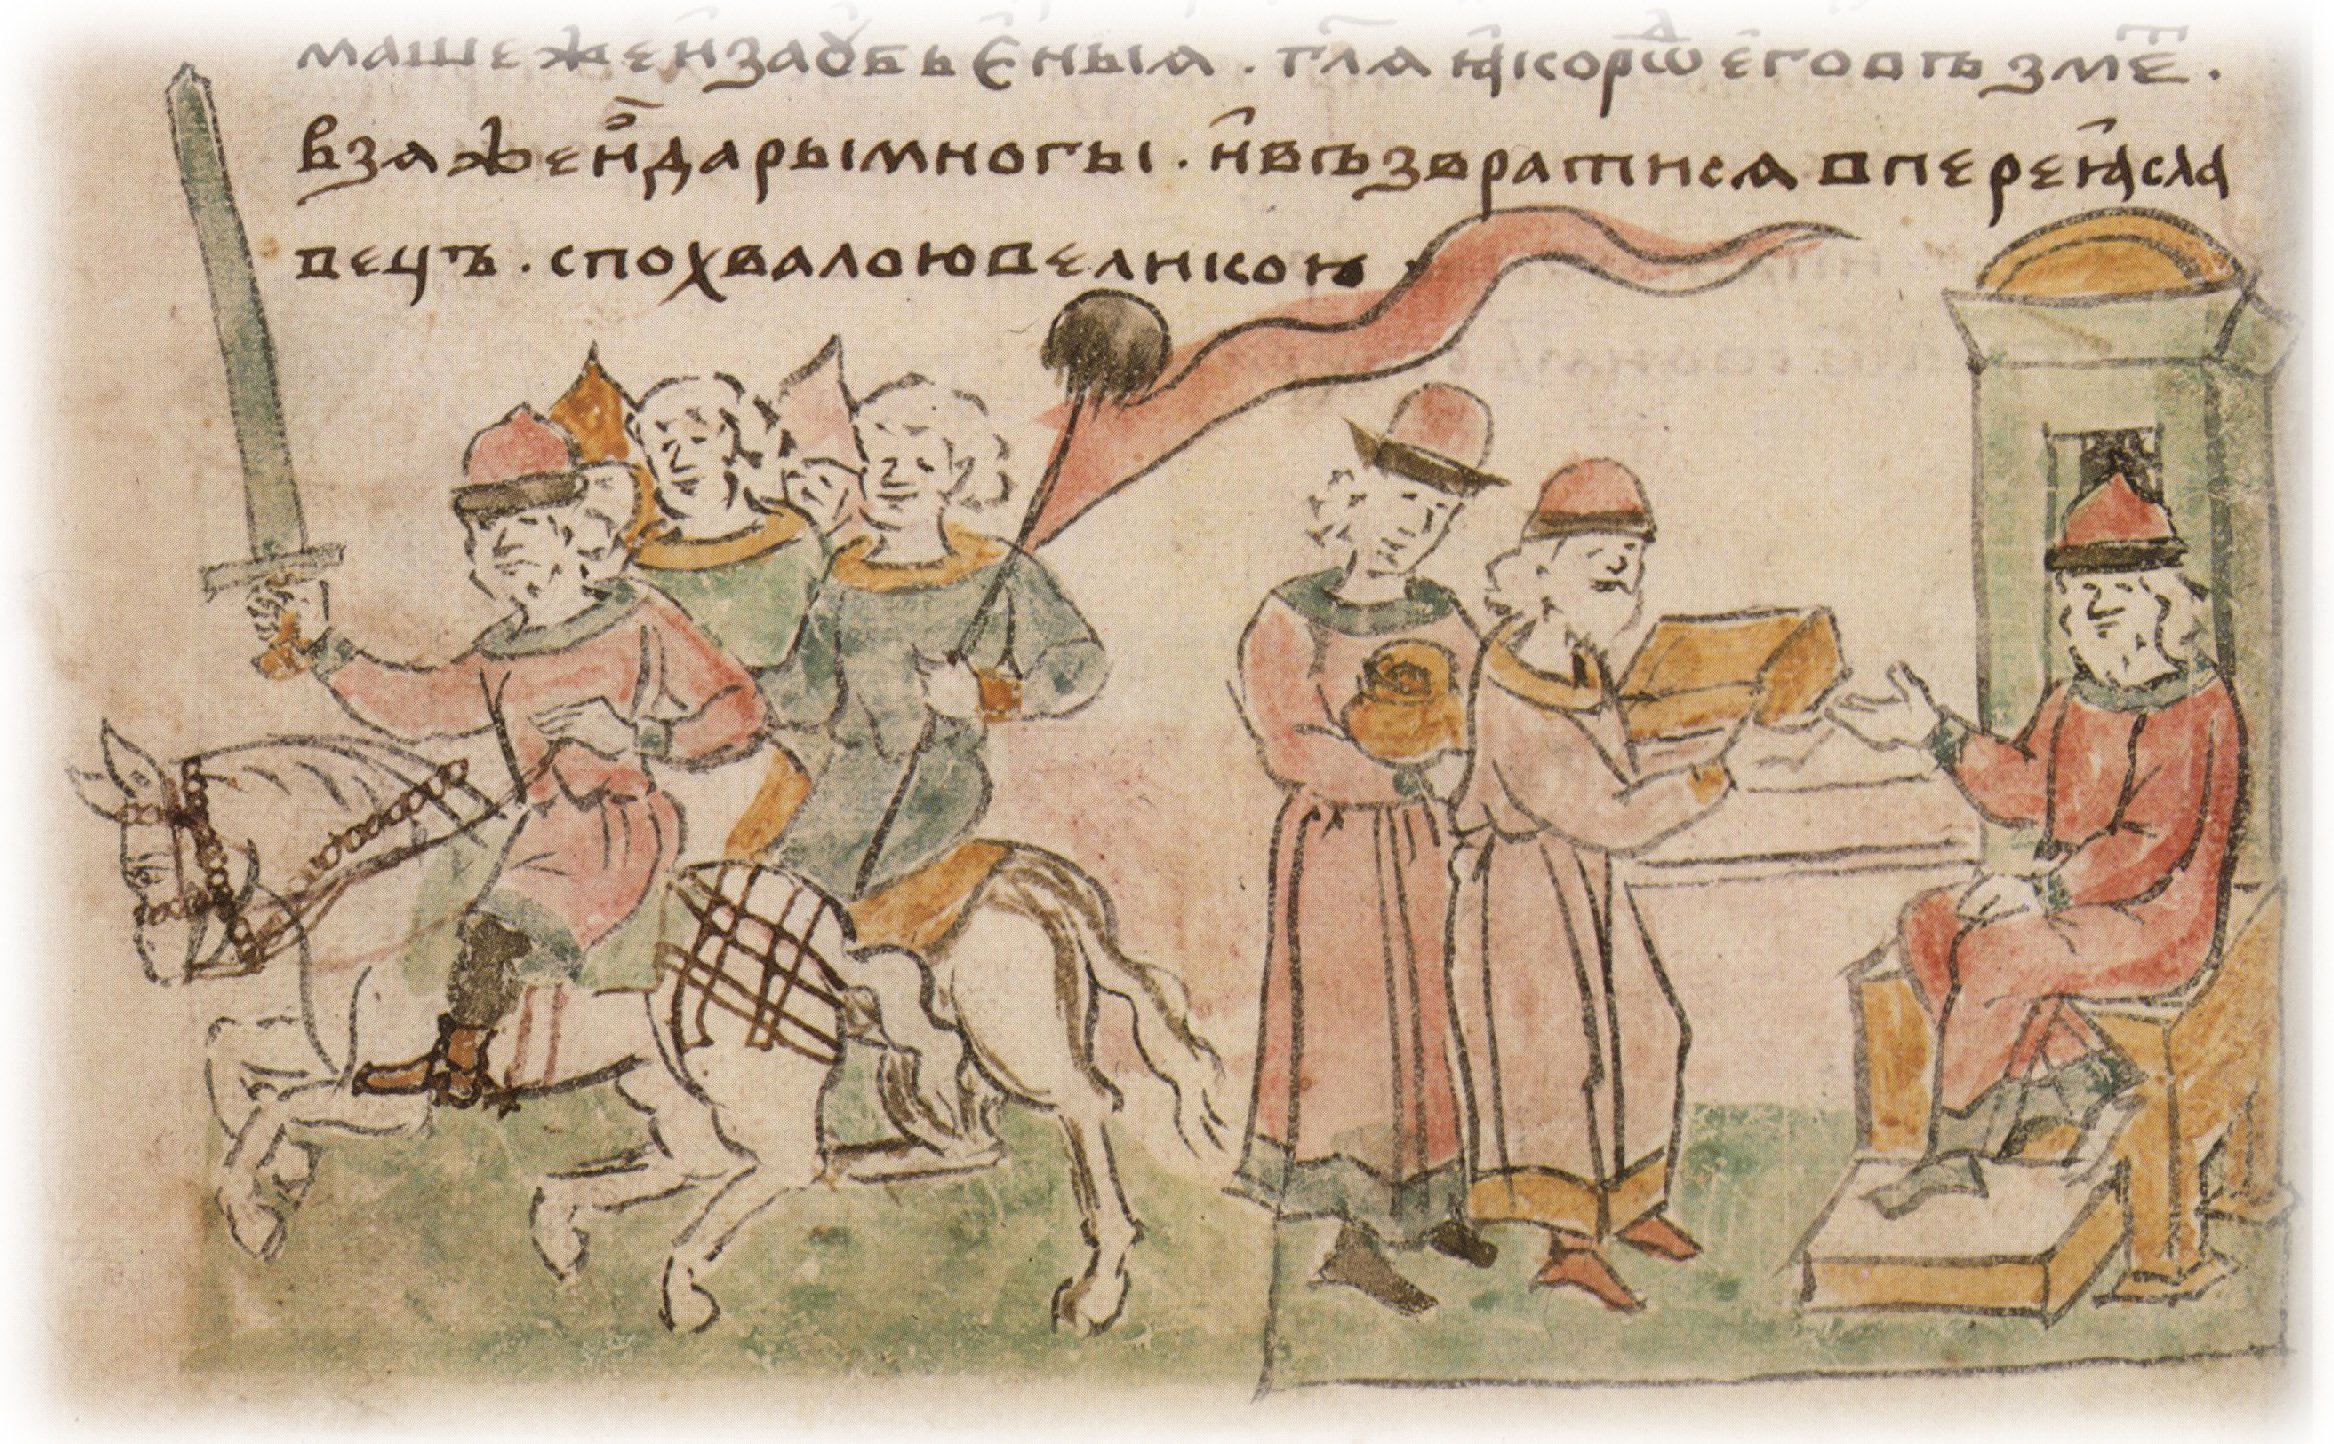 машеже и҆заꙋбьєныѧ . гл҃ѧ ꙗкорѡⷣ еговъзмеⷮ .
взѧже и҆дарымногы . и҆възвратисѧ впереꙗсла
вецъ . спохвалоювеликою .